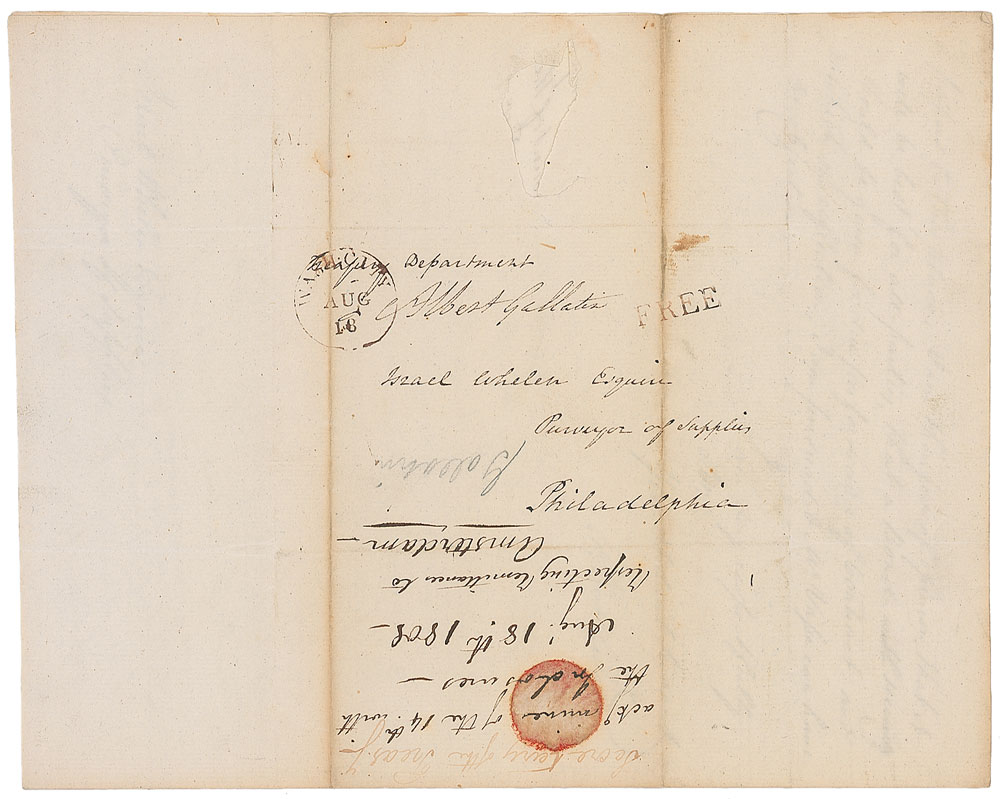 Treasury Department
WASH. CITY
AUG
18
Albert Gallatin
FREE
Israel Whelen Esquire
Purveyor of Supplies
Philadelphia
Gallatin
Secretary of the Treasy
ackg mine of the 14th with
the Inclosures —
Augt 18th 1802 —
Respecting Remittances to
Amsterdam —